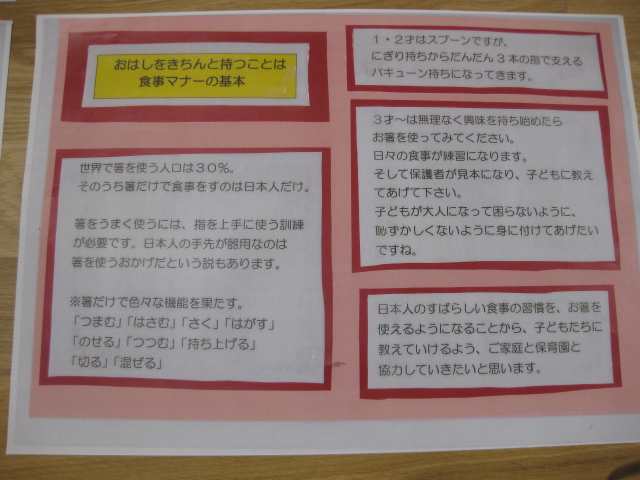 おはしをきちんと持つことは
食事マナーの基本
世界で箸を使う人口は３０％。
そのうち箸だけで食事をすのは日本人だけ。
箸をうまく使うには、指を上手に使う訓練
が必要です。日本人の手先が器用なのは
箸を使うおかげだという説もあります。
※箸だけで色々な機能を果たす。
「つまむ」「はさむ」「さく」「はがす」
「のせる」「つつむ」「持ち上げる」
「切る」「混ぜる」
１・２才はスプーンですが、
にぎり持ちからだんだん３本の指で支える
バキューン持ちになってきます。
３才～は無理なく興味を持ち始めたら
お箸を使ってみてください。
日々の食事が練習になります。
そして保護者が見本になり、子どもに教え
てあげて下さい。
子どもが大人になって困らないように、
恥ずかしくないように身に付けてあげたい
ですね。
日本人のすばらしい食事の習慣を、お箸を
使えるようになることから、子どもたちに
教えていけるよう、ご家庭と保育園と
協力していきたいと思います。